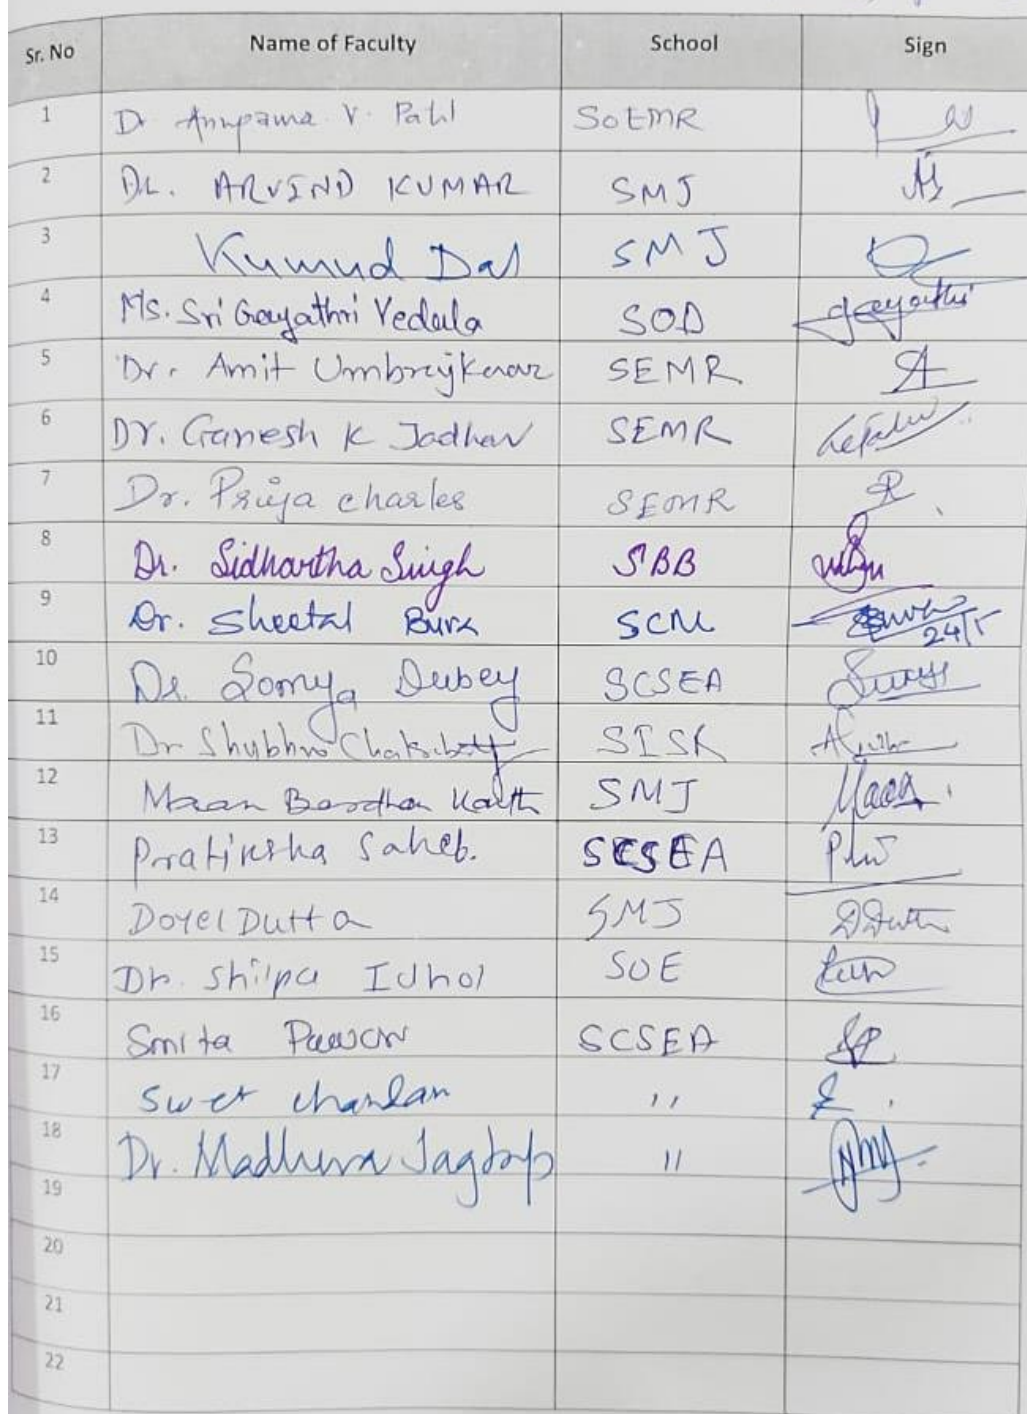 Sr. No Name of Faculty School Sign
1 Dr Anupama V. Patil SOEMR
2 Dr. ARVIND KUMAR SMJ
3 Kumud Das SMJ
4 Ms. Sri Gayathri Vedula SOD Gayathri
5 Dr. Amit Umbrajkaar SEMR
6 Dr. Ganesh K Jadhav SEMR
7 Dr. Priya Charles SEOMR
8 Dr. Sidhartha Singh SBB
9 Dr. Sheetal Bura SCM 24/5
10 Dr. Somya Dubey SCSEA
11 Dr Shubhro Chakraborty SISK
12 Maan Bardhan SMJ Maan
13 Pratiksha Saheb. SCSEA
14 Doyel Dutta SMJ DDutta
15 Dr. Shilpa Idhol SOE
16 Smita Pawar SCSEA
17 Swet Chandan ,,
18 Dr. Madhura Jagtap ,,
19
20
21
22